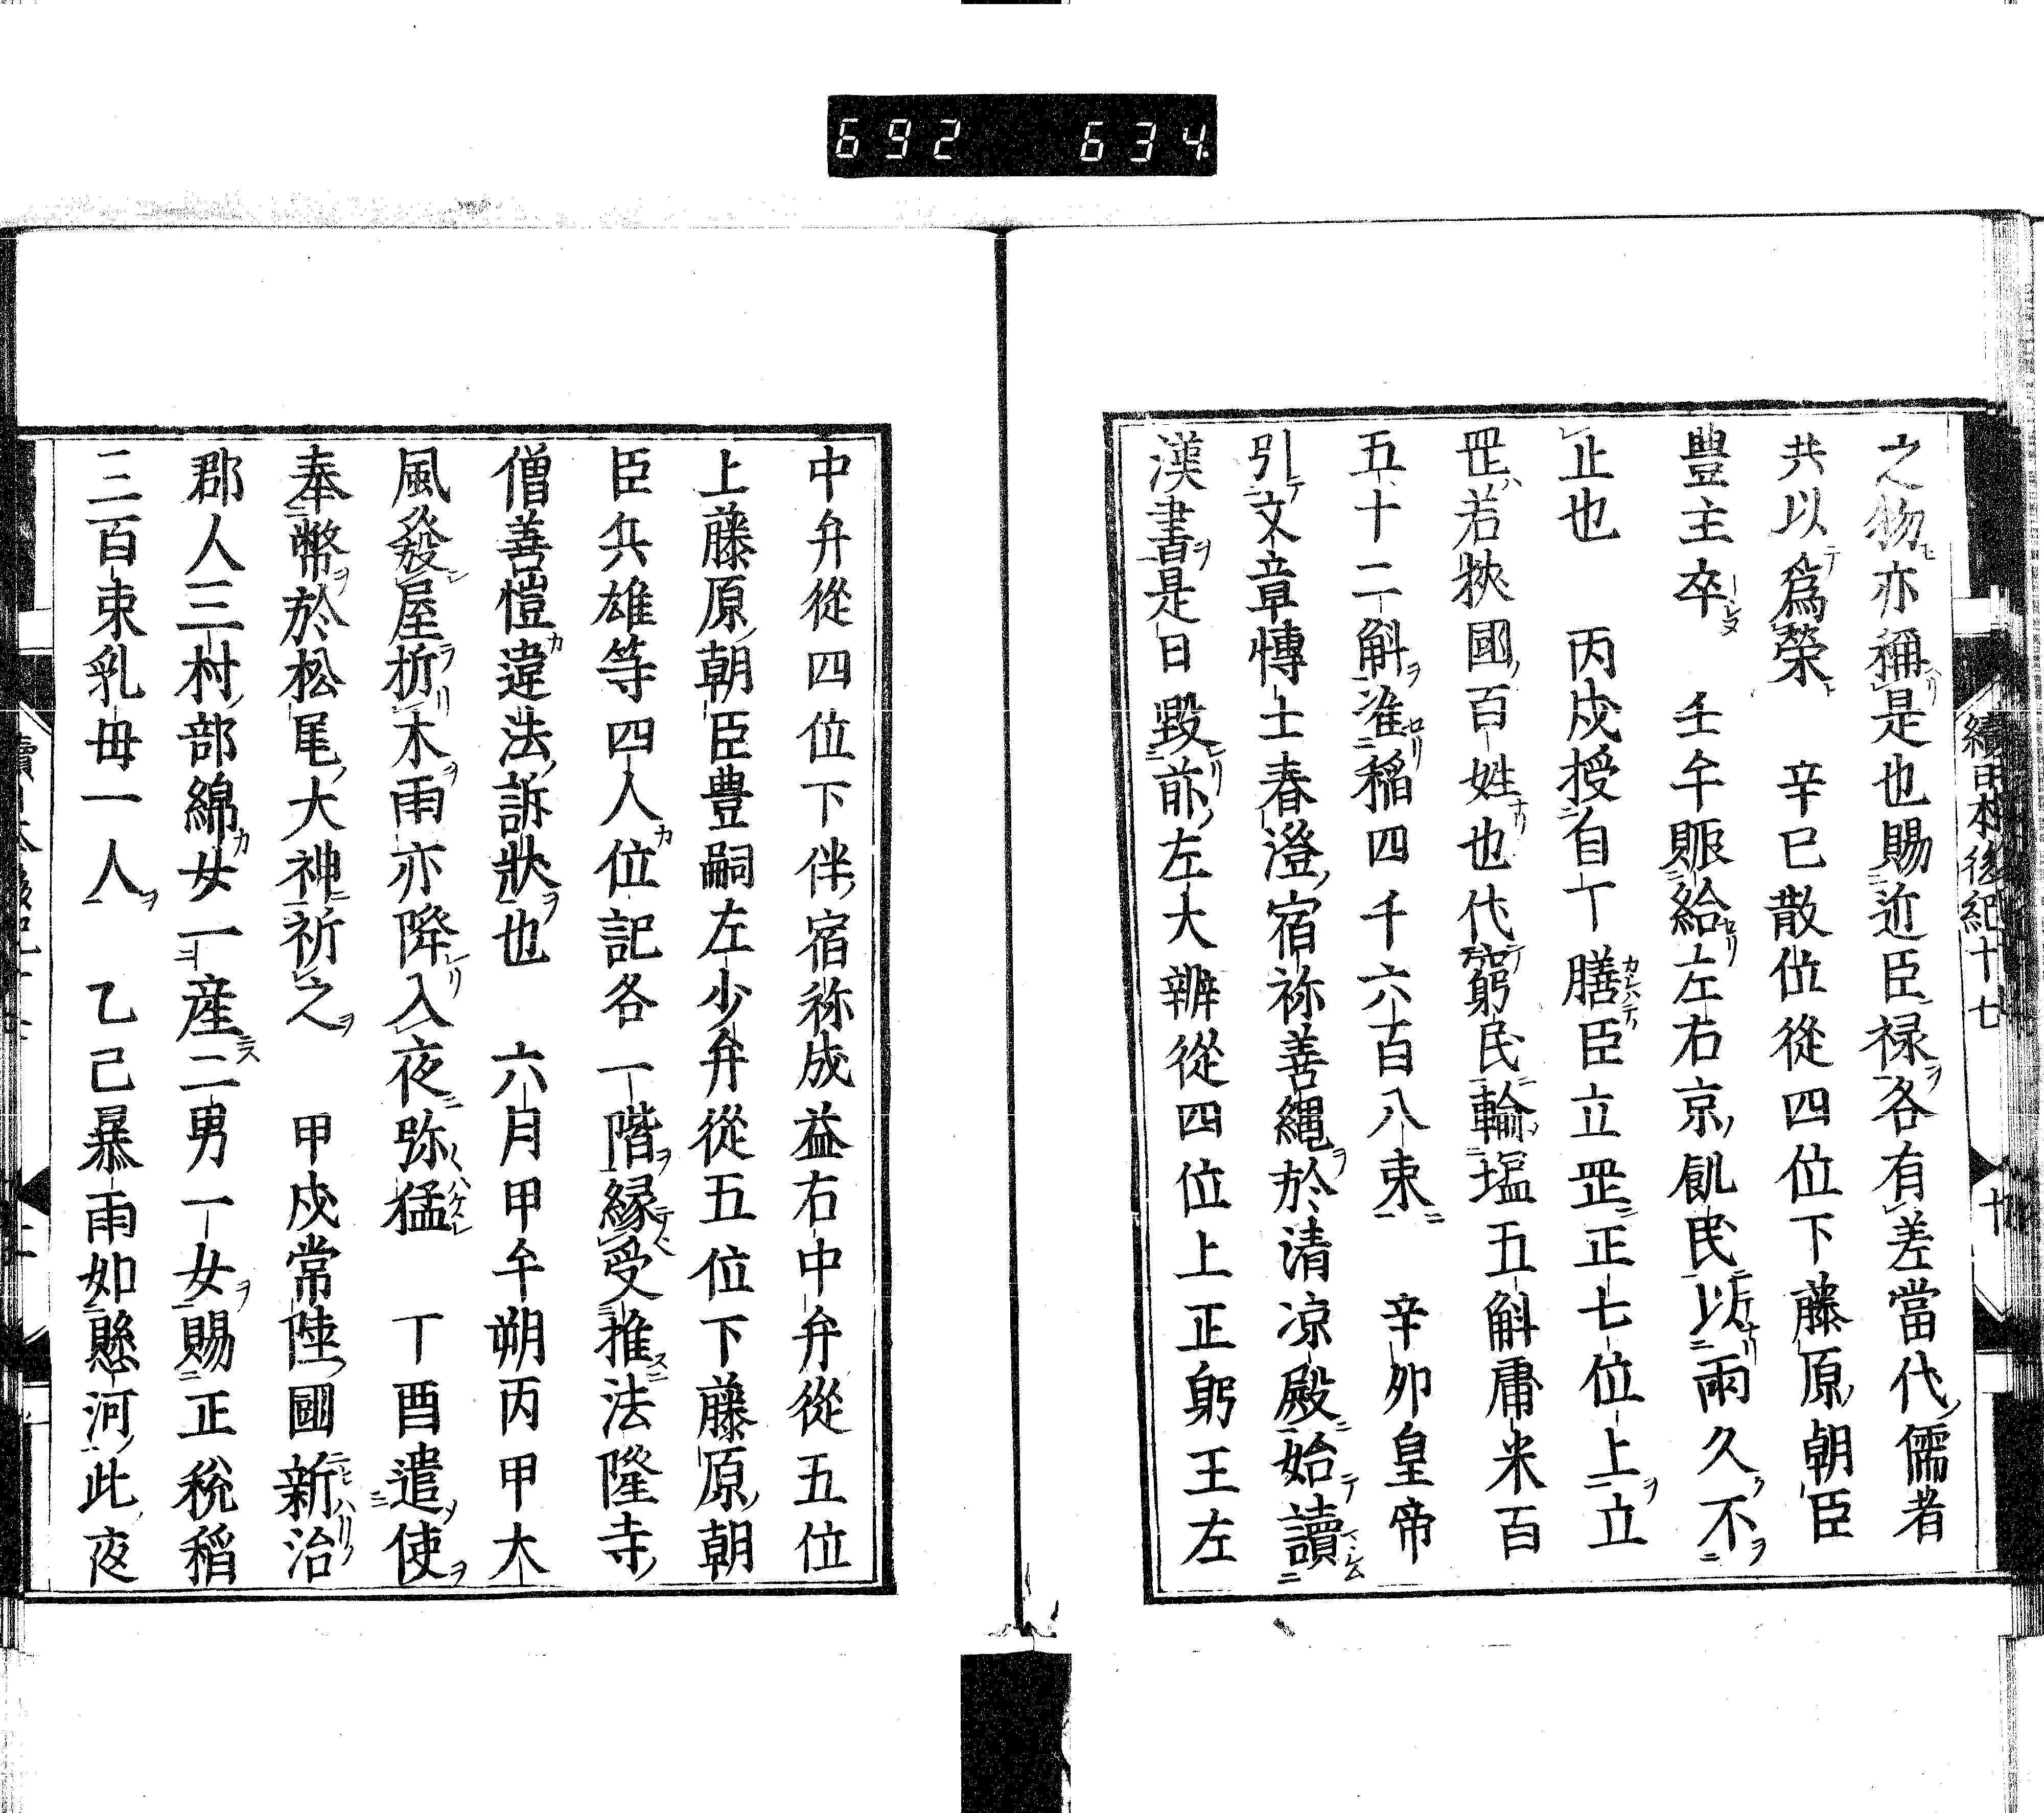 692 634
續日本後紀十七 十
之物亦稱是也賜近臣禄各有差當代儒者
共以爲榮 辛巳散位從四位下藤原朝臣
豊主卒 壬午賑給左右京飢民以雨久不
止也 丙戌授白丁膳臣立罡正七位上立
罡若狹國百姓也代窮民輸塩五斛庸米百
五十二斛准稲四千六百八束 辛卯皇帝
引文章愽士春澄宿祢善縄於清凉殿始讀
漢書是日毀前左大辨從四位上正躬王左
中弁從四位下伴宿祢成益右中弁從五位
上藤原朝臣豊嗣左少弁從五位下藤原朝
臣兵雄等四人位記各一階縁受推法隆寺
僧善愷違法訴狀也 六月甲午朔丙甲大
風發屋折木雨亦降入夜弥猛 丁酉遣使
奉幣於松尾大神祈之 甲戌常陸國新治
郡人三村部綿女一産二男一女賜正税稻
三百束乳母一人 乙己暴雨如懸河此夜